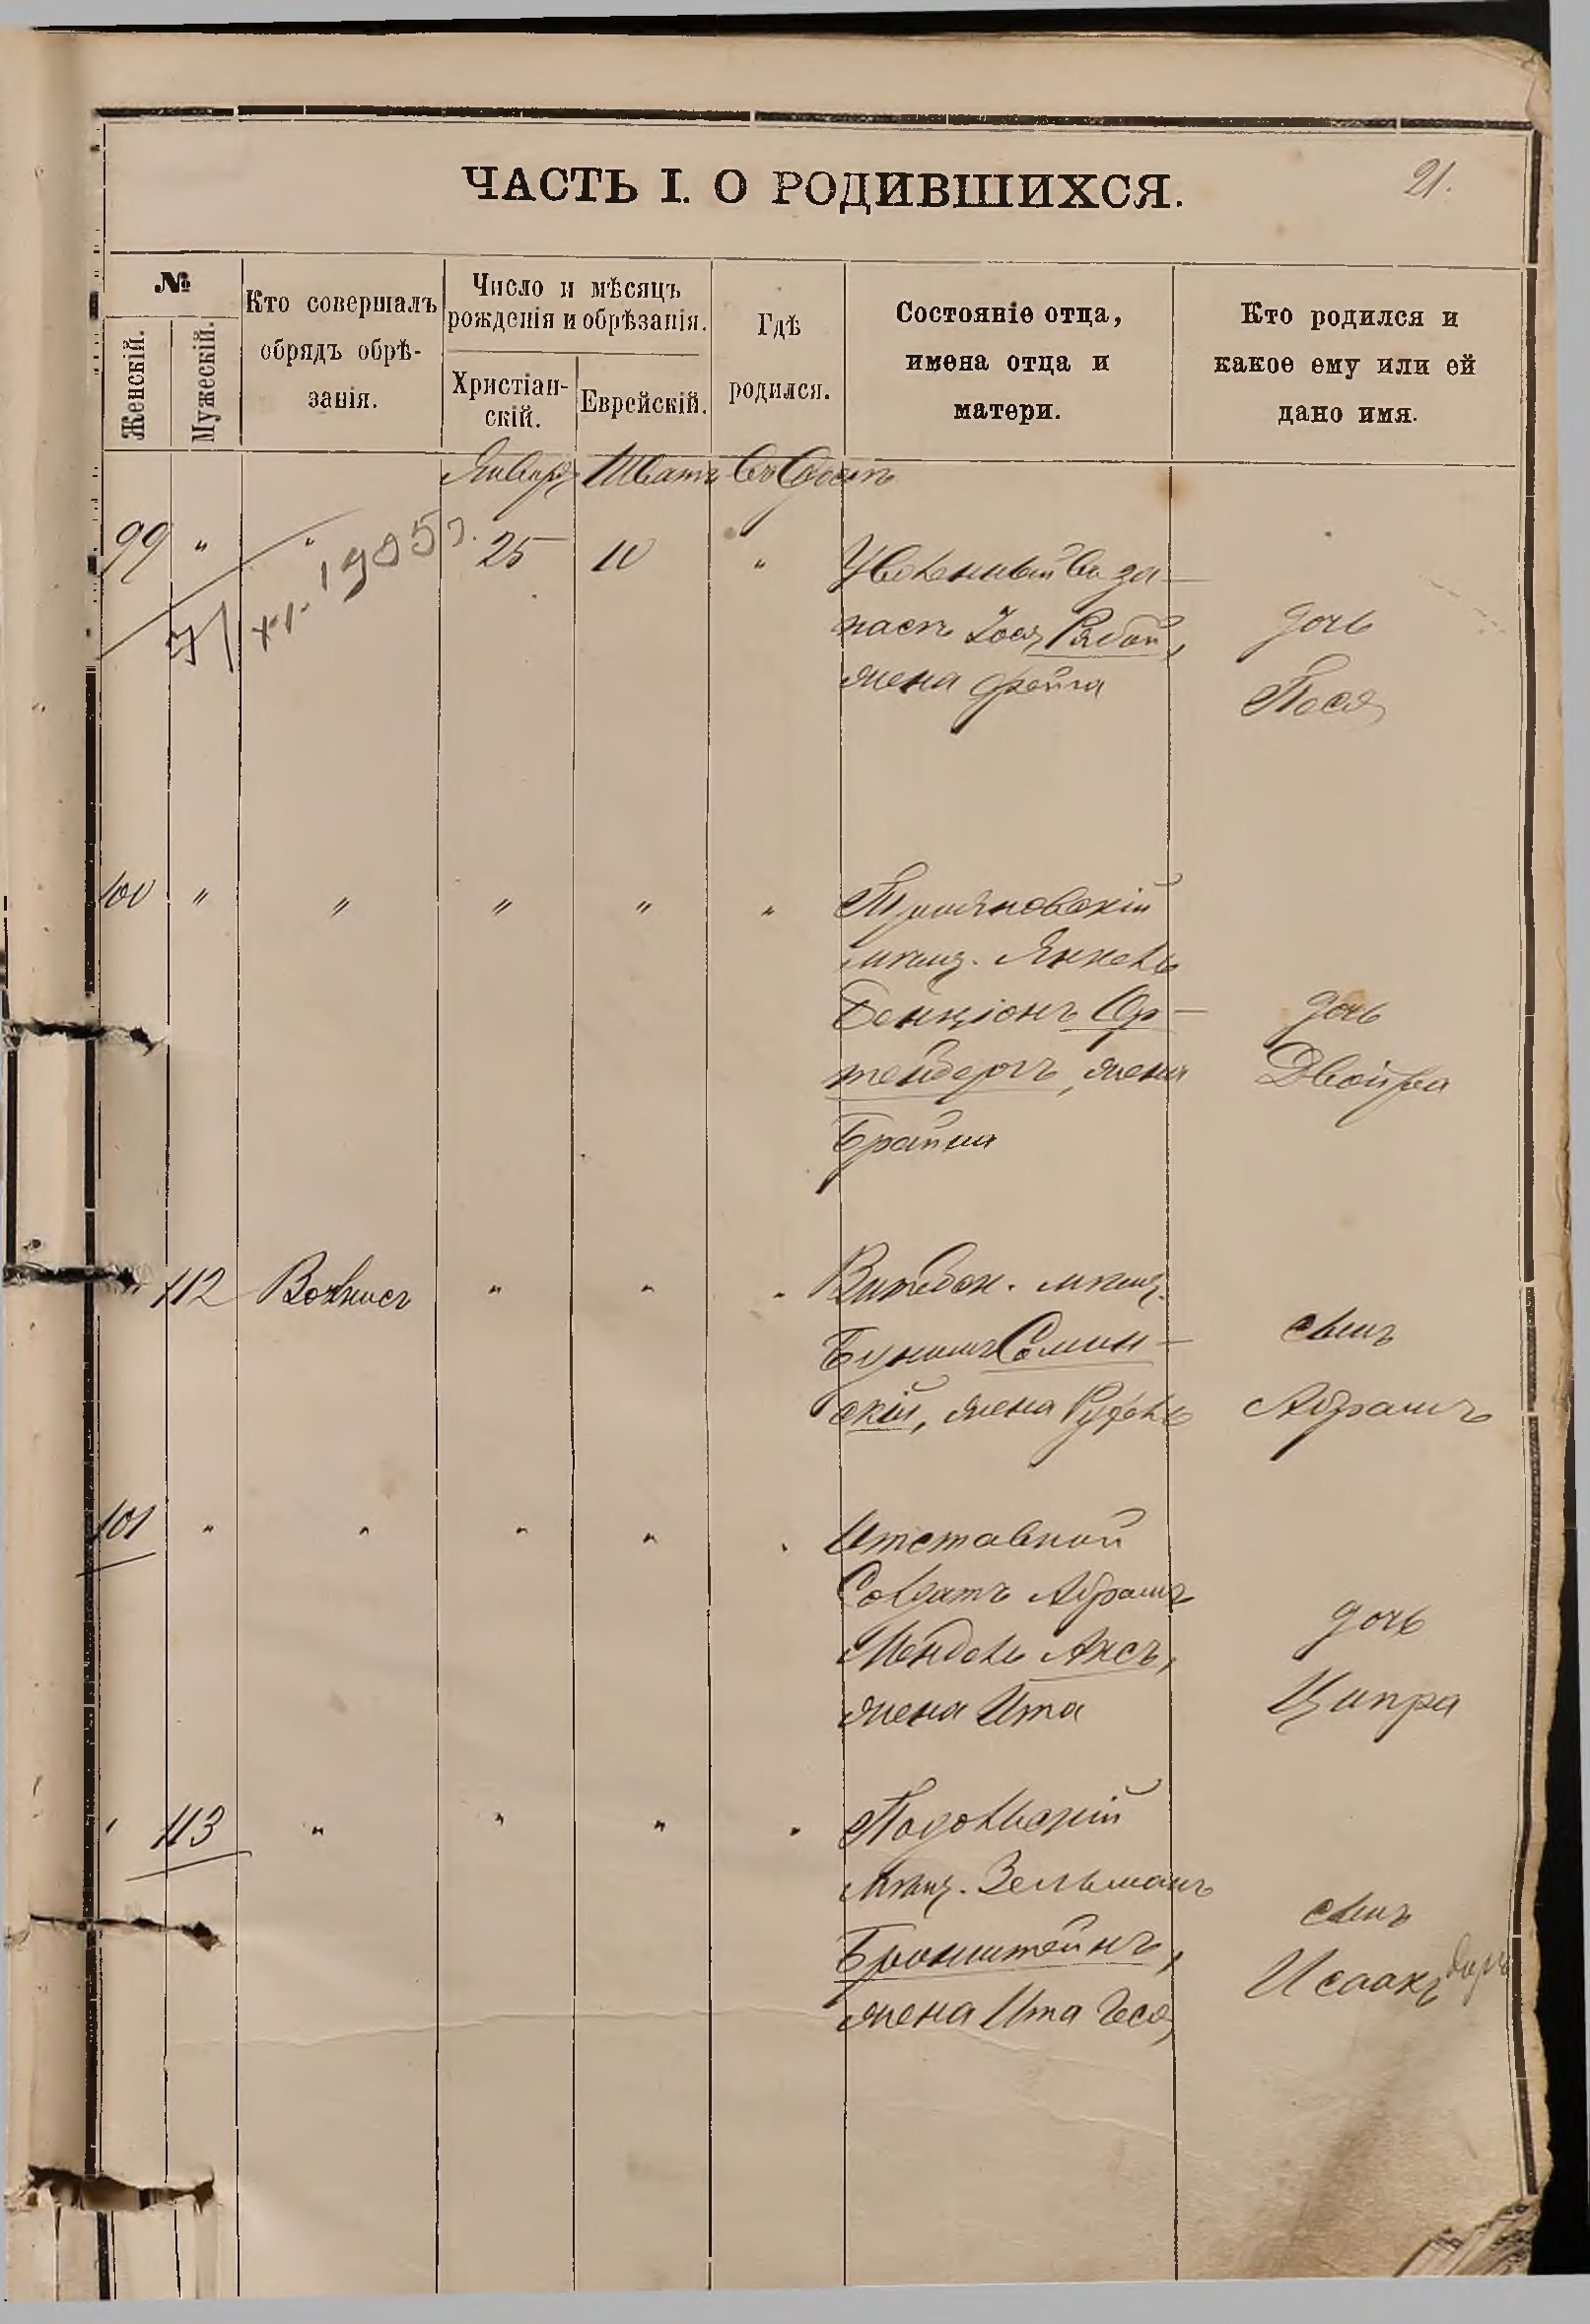 ЧАСТЬ I. О РОДИВШИХСЯ.
21.
№
Женскій.
Мужескій.
Кто совершалъ
обрядъ обрѣ-
занія.
Число и мѣсяцъ
рожденія и обрѣзанія.
Христіан-
скій.
Еврейскій.
Гдѣ
родился.
Состояніе отца,
имена отца и
матери.
Кто родился и
какое ему или ей
дано имя.
Январь Шватъ Въ Одессѣ
99 " " 25 10 "
7/XI. 1905 г.
Уволенный въ за-
пасъ Іося Рябой,
жена Фейга
дочь
Песя
100 " " " " "
мѣщ. Янкель
Бенціонъ Ор-
тенбергъ, жена
Брайна
дочь
Двойра
" 112 " " "
Витебск. мѣщ.
Бунимъ Сомин-
скій, жена Рухель
сынъ
Абрамъ
101 " " " " "
Отставной
Солдатъ Абрамъ
Мендель Аксъ,
жена Ита
дочь
Ципра
" 113 " " " "
Подольскій
мѣщ. Зельманъ
Бронштейнъ,
жена Ита Геся
сынъ
Исаакъ